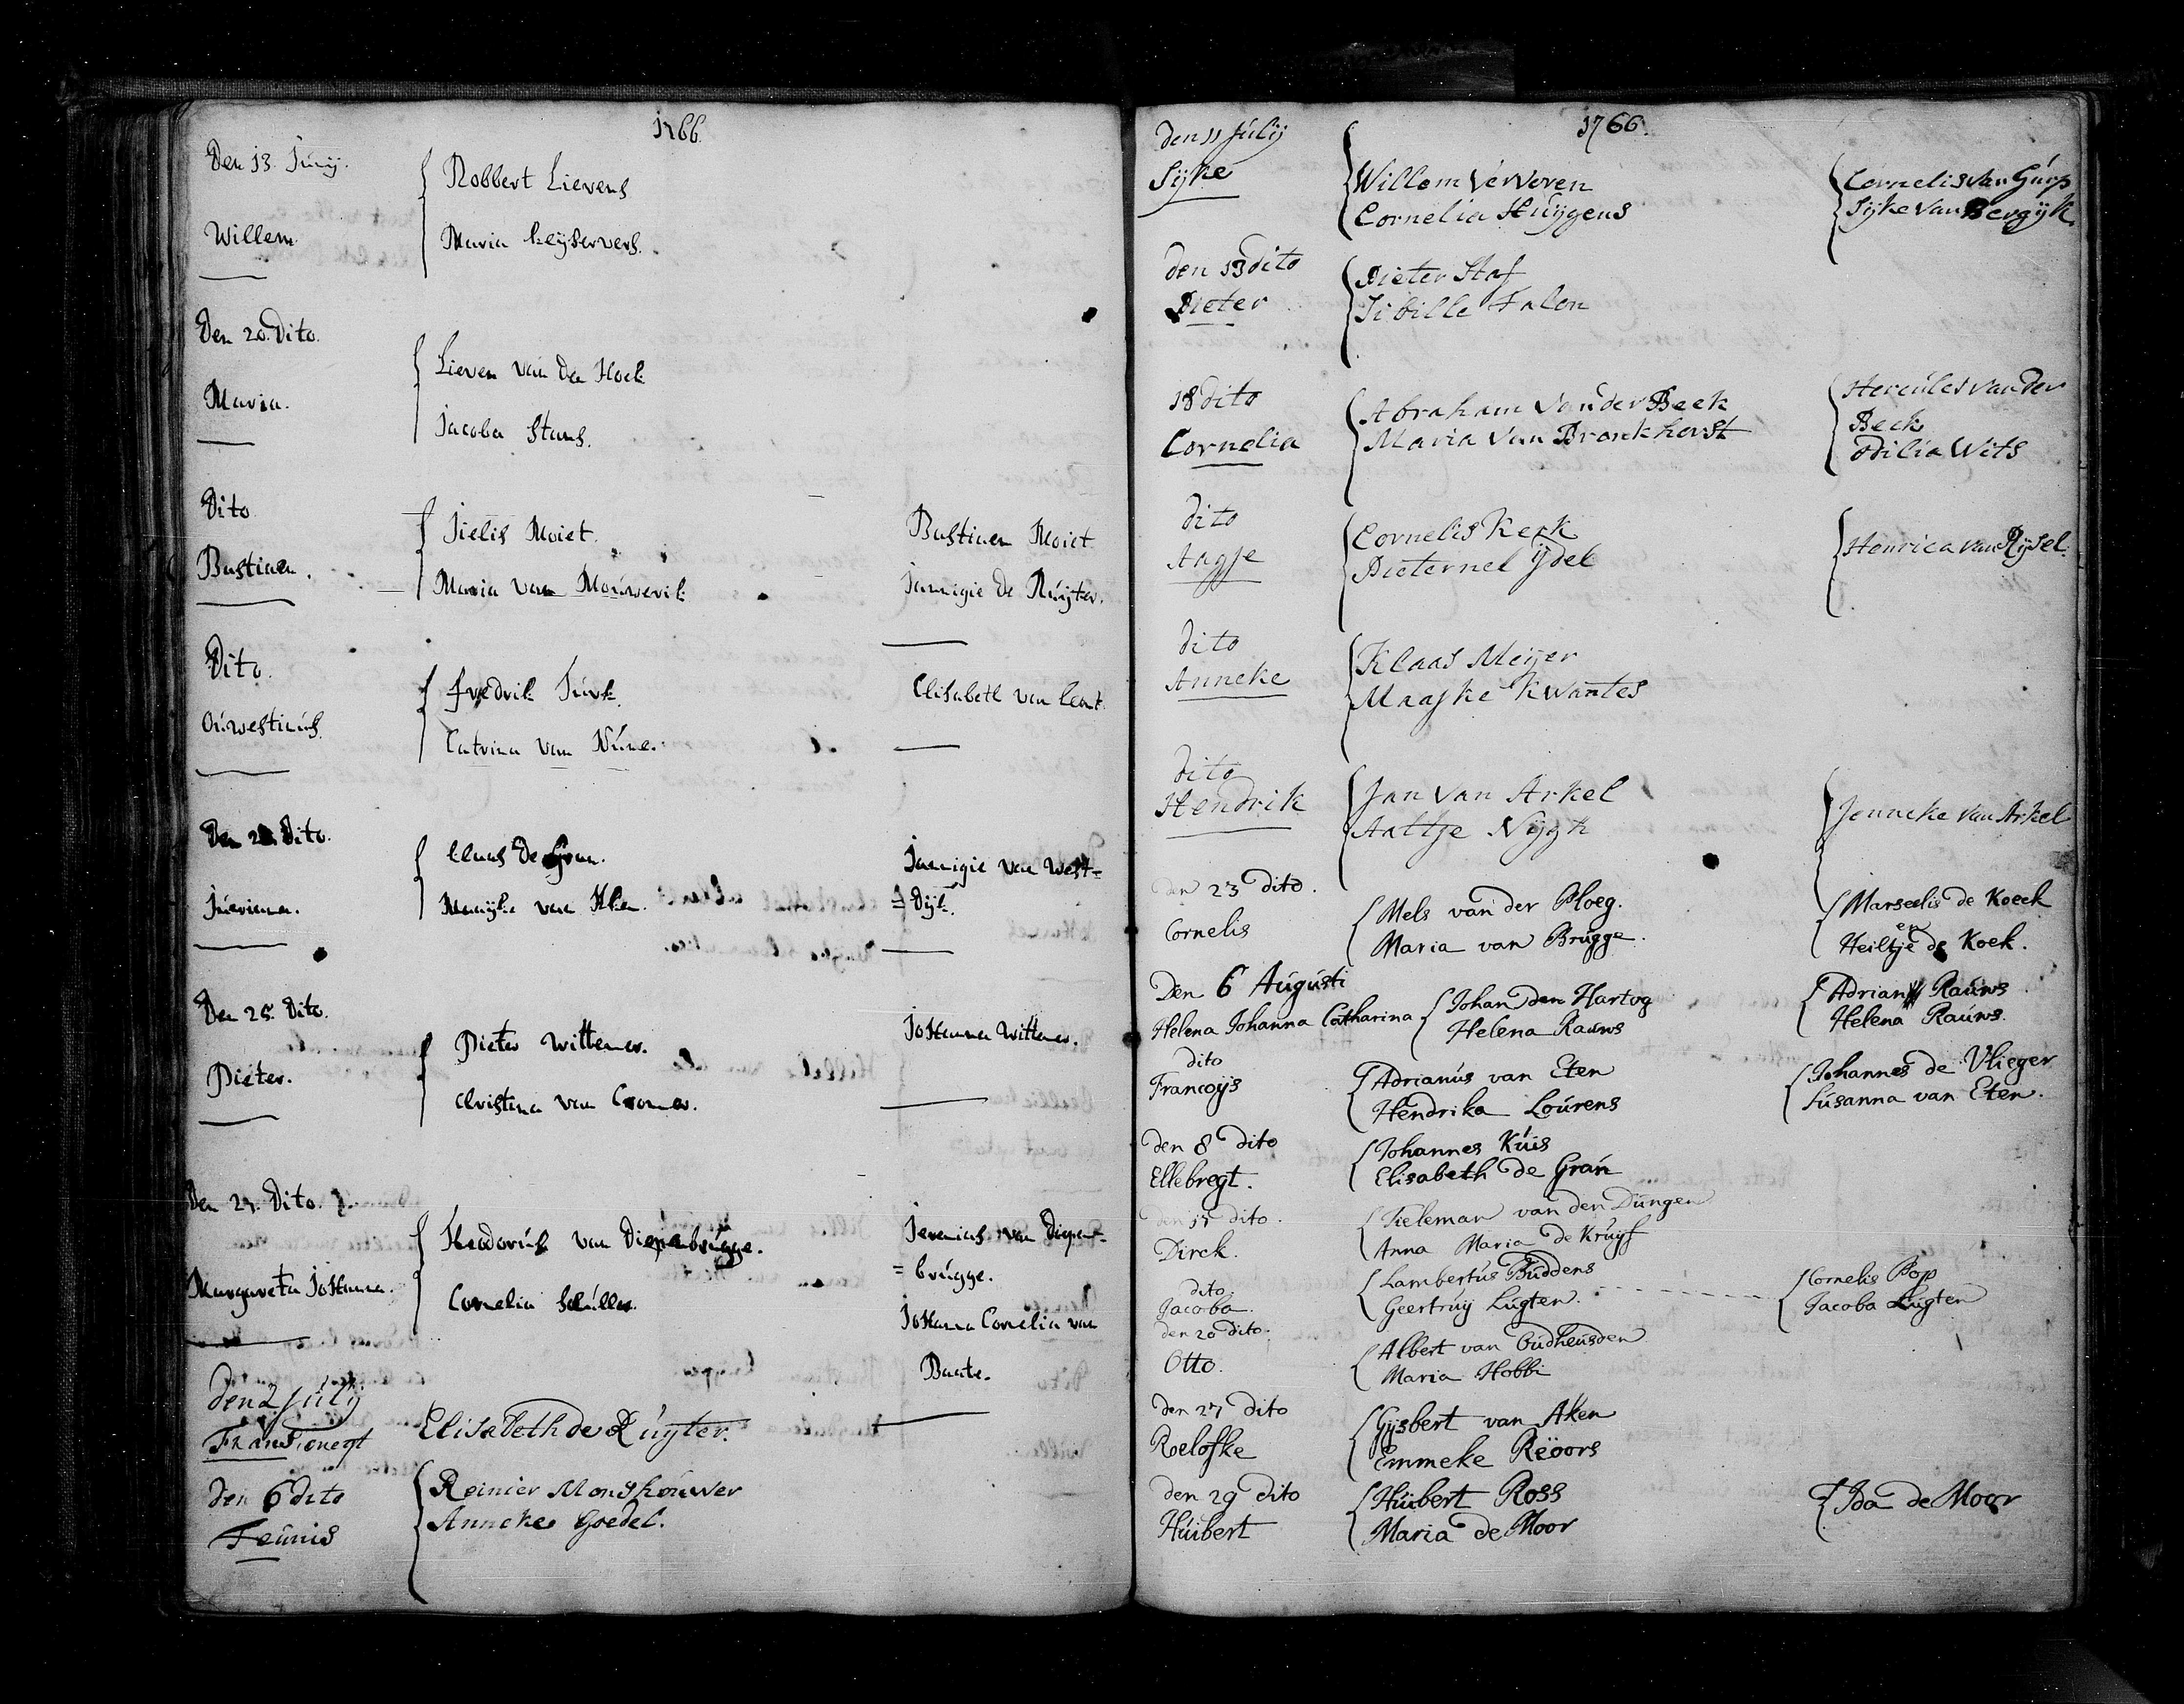 1766.
Den 13. Junij.
Willem
Robbert Lievens
Maria Keijservers.
Den 20. Dito.
Maria.
Lieven van der Hoek
Jacoba Stans.
Dito
Bastiaen.
Jielis Moiet.
Maria van Mouwerik
Bastiaen Moiet
Jannigie de Ruijter.
Dito.
Fredrik Turk.
Catrina van
Elisabeth van Cent.
Den Dito.
Jurriana.
Claas de Grau.
Maayke van Aken.
Jannigie van West=
=Dijk.
Den 25. Dito.
Pieter.
Pieter Wittener.
Christina van Cromer.
Johanna Wittener.
Den 27. Dito.
Margareta Johanna.
Theodorus van Diepenbrugge.
Cornelia Schuller.
Jeremias van Diepen=
=brugge.
Johanna Cornelia van
Baate.
den 2 Julij
Elisabeth de Ruyter.
den 6 dito
Teunis
Reinier Monshouwer
Anneke Goedel.
1766.
den 11 Julij
Sijke
Willem Ververen
Cornelia Huijgens
Cornelis van Gurp
Sijke van Bergijk.
den 13 dito
Pieter
Pieter Staf
Sibille Falon
18 dito
Cornelia
Abraham van der Beek
Maria van Bronkhorst
Hercules van der
Beek
Odilia Wits
dito
Aagje
Cornelis Kerk
Pieternel Ijdel
Henrica van Rijsel.
dito
Anneke
Klaas Meijer
Maajke Kwantes
dito
Hendrik
Jan van Arkel
Aaltje Nijgh
Jenneke van Arkel
den 23 dito.
Cornelis
Mels van der Ploeg.
Maria van Brugge.
Marseelis de Koeck
en
Heiltje de Koek.
Den 6 Augusti
Helena Johanna Catharina
Johan den Hartog
Helena Rauws
Adrian Rauws
Helena Rauws.
dito
Francoijs
Adrianus van Eten
Hendrika Lourens
Johannes de Vlieger
Susanna van Eten.
den 8 dito
Ellebregt.
Johannes Kuis
Elisabeth de Graú
den 17 dito.
Dirck.
Tieleman van den Dungen
Anna Maria de Kruyf
dito.
Jacoba.
Lambertus Buddens
Geertruy Lugten.
Cornelis Pop
Jacoba Lugten
den 20 dito.
Otto.
Albert van Oudheusden
Maria Hobbi
den 27 dito
Roelofke
Gijsbert van Aken
Emmeke Reoors
den 29 dito
Huibert
Huibert Ross
Maria de Moor
Ida de Moor